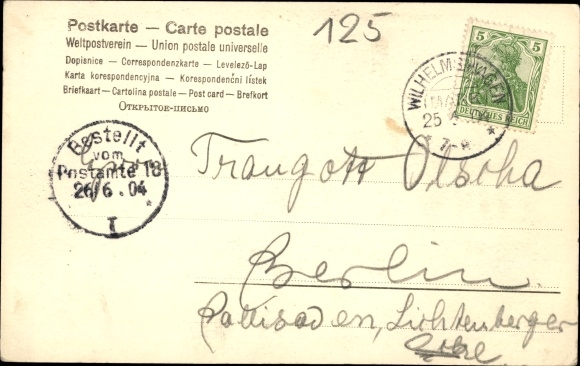 Postkarte — Carte postale
Weltpostverein — Union postale universelle
Dopisnice — Correspondenzkarte — Levelező-Lap
Karta korespondencyjna — Korespondenční lístek
Briefkaart — Cartolina postale — Post card — Brefkort
Открытое-письмо
125
5 5
DEUTSCHES REICH
WILHELMSHAGEN
25
7-8
Bestellt
vom
Postamte 18
26/6.04
I
Traugott Olscha
Berlin.
Pallisaden, Lichtenberger
Ecke